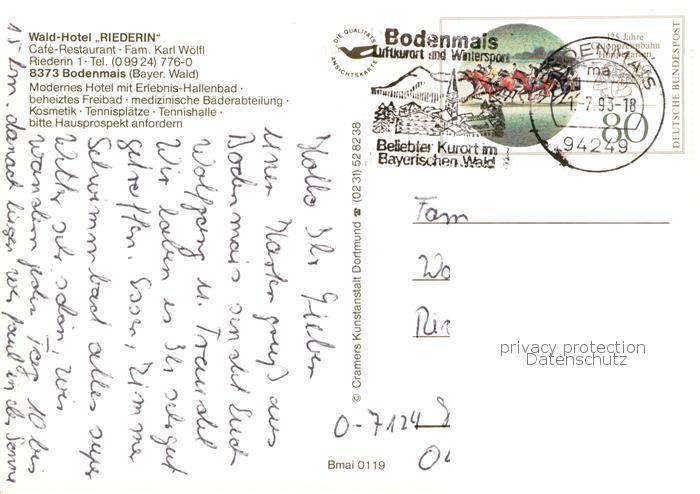 Wald-Hotel „RIEDERIN“
Café-Restaurant · Fam. Karl Wölfl
Riederin 1 · Tel. (0 99 24) 776-0
8373 Bodenmais (Bayer. Wald)
Modernes Hotel mit Erlebnis-Hallenbad ·
beheiztes Freibad · medizinische Bäderabteilung ·
Kosmetik · Tennisplätze · Tennishalle ·
bitte Hausprospekt anfordern
DIE QUALITÄTS
ANSICHTSKARTE
Bodenmais
Luftkurort und Wintersport
Beliebter Kurort im
Bayerischen Wald
125 Jahre
Galopprennbahn
Hoppegarten
80
DEUTSCHE BUNDESPOST
BODENMAIS
ma
1.-7.93-18
94249
Hallo Ihr Lieben
einen Kartengruß aus
Bodenmais sendet Euch
Wolfgang u. Traudel
Wir haben es sehr gut
getroffen. Essen, Zimmer
Schwimmbad alles super
Wetter sehr schön, wir
wandern jeden Tag 10 bis
15 km. danach liegen wir faul in der Sonne
© Cramers Kunstanstalt Dortmund ☎ (02 31) 52 82 38
Bmai 0119
Fam
O-7124
privacy protection
Datenschutz